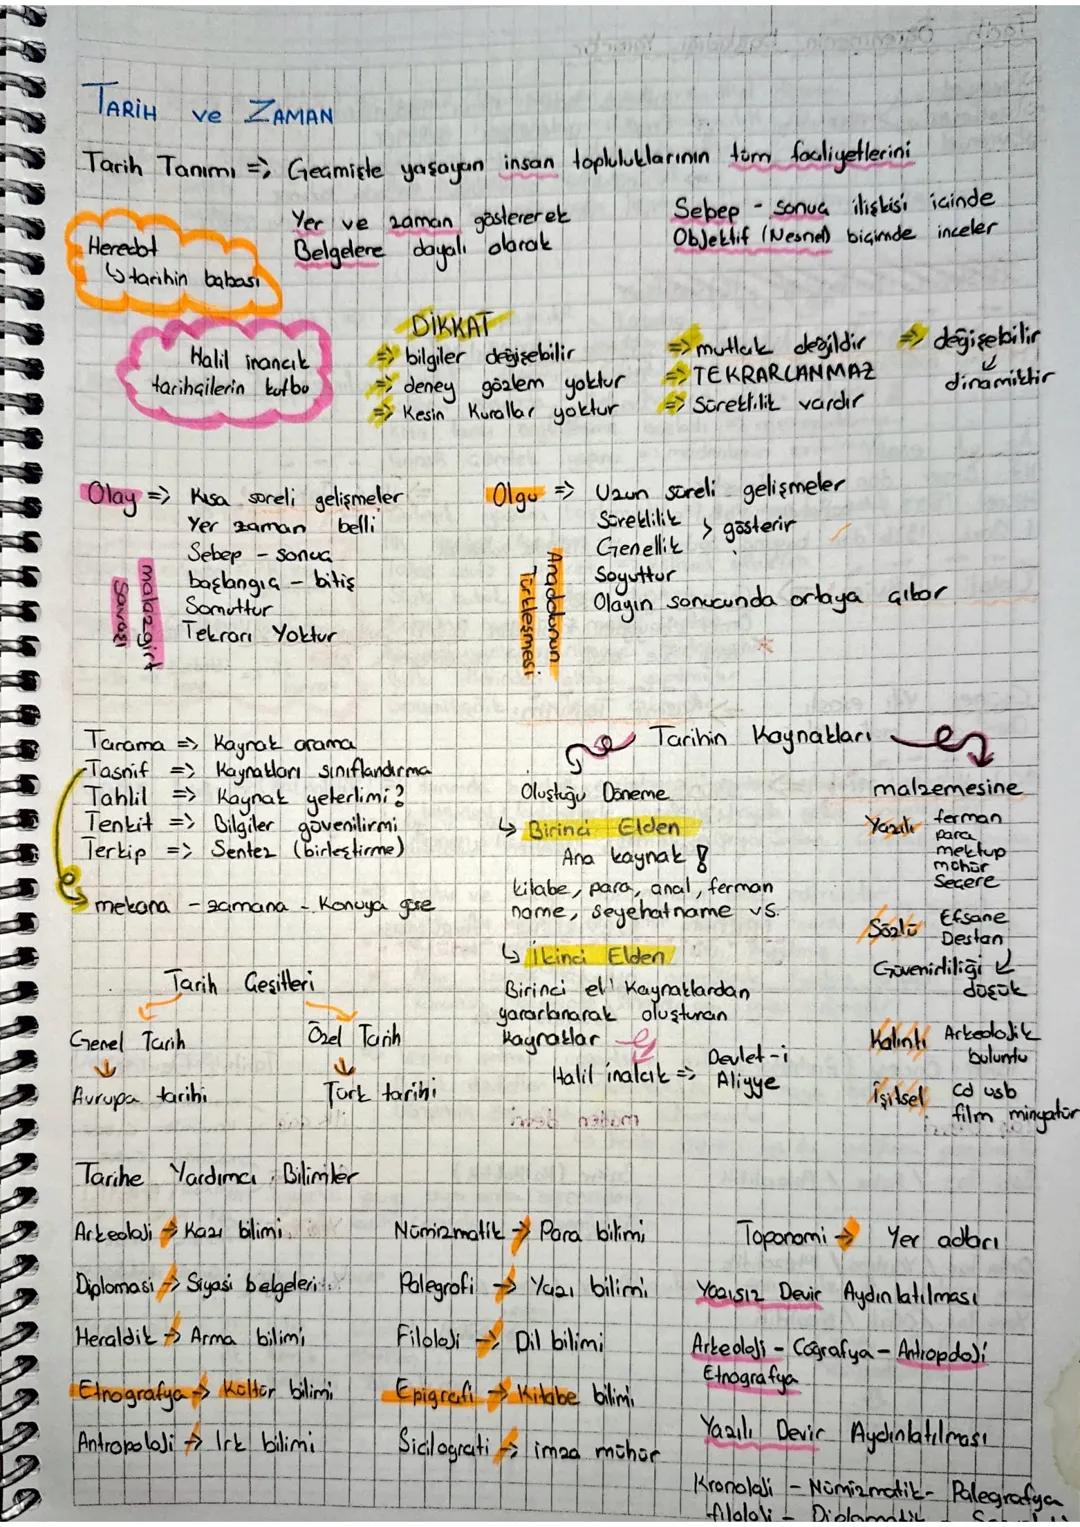 TARİH ve ZAMAN
Tarih Tanımı => Geçmişte yaşayan insan topluluklarının tüm faaliyetlerini
Yer ve zaman göstererek
Belgelere dayalı olarak
Sebep - sonuç ilişkisi içinde
Objektif (Nesnel) biçimde inceler
Heredot
↳ tarihin babası
Halil inancık
tarihçilerin kutbu
DİKKAT
=> bilgiler değişebilir
=> deney gözlem yoktur
=> Kesin Kurallar yoktur
=> mutlak değildir
=> TEKRARLANMAZ
=> Süreklilik vardır
=> değişebilir
↙
dinamiktir
Olay => Kısa süreli gelişmeler
Yer zaman belli
Sebep - sonuç
başlangıç - bitiş
Somuttur
Tekrarı Yoktur
malazgirt
Savaşı
Olgu => Uzun süreli gelişmeler
Süreklilik
Genellik
> gösterir
Soyuttur
Olayın sonucunda ortaya çıkar
Anadolunun
Türkleşmesi
Tarama => Kaynak arama
Tasnif => Kaynakları sınıflandırma
Tahlil => Kaynak yeterlimi?
Tenkit => Bilgiler güvenilirmi
Terkip => Sentez (birleştirme)
mekana - zamana - Konuya göre
Tarihin Kaynakları
Oluştuğu Döneme
↳ Birinci Elden
Ana kaynak !
kitabe, para, anal, ferman
name, seyehatname vs.
↳ İkinci Elden
Birinci el Kaynaklardan
yararlanarak oluşturulan
kaynaklar
Halil inalcık => Devlet-i
Aliyye
malzemesine
Yazılı ferman
para
mektup
mühür
Secere
Sözlü Efsane
Destan
Güvenirliliği ↵
düşük
Kalıntı Arkeolojik
buluntu
İşitsel cd usb
film minyatür
Tarih Çeşitleri
Genel Tarih
↓
Avrupa tarihi
Özel Tarih
↓
Türk tarihi
Tarihe Yardımcı Bilimler
Arkeoloji → Kazı bilimi
Diplomasi → Siyasi belgeleri
Heraldik → Arma bilimi
Etnografya → Kültür bilimi
Antropoloji → Irk bilimi
Nümizmatik → Para bilimi
Palegrofi → Yazı bilimi
Filoloji → Dil bilimi
Epigrafi → Kitabe bilimi
Sicilografi → imza mühür
Toponomi → Yer adları
Yazısız Devir Aydınlatılması
Arkeoloji - Coğrafya - Antropoloji
Etnografya
Yazılı Devir Aydınlatılması
Kronoloji - Nümizmatik - Palegrafya
filoloji - Diplomatik